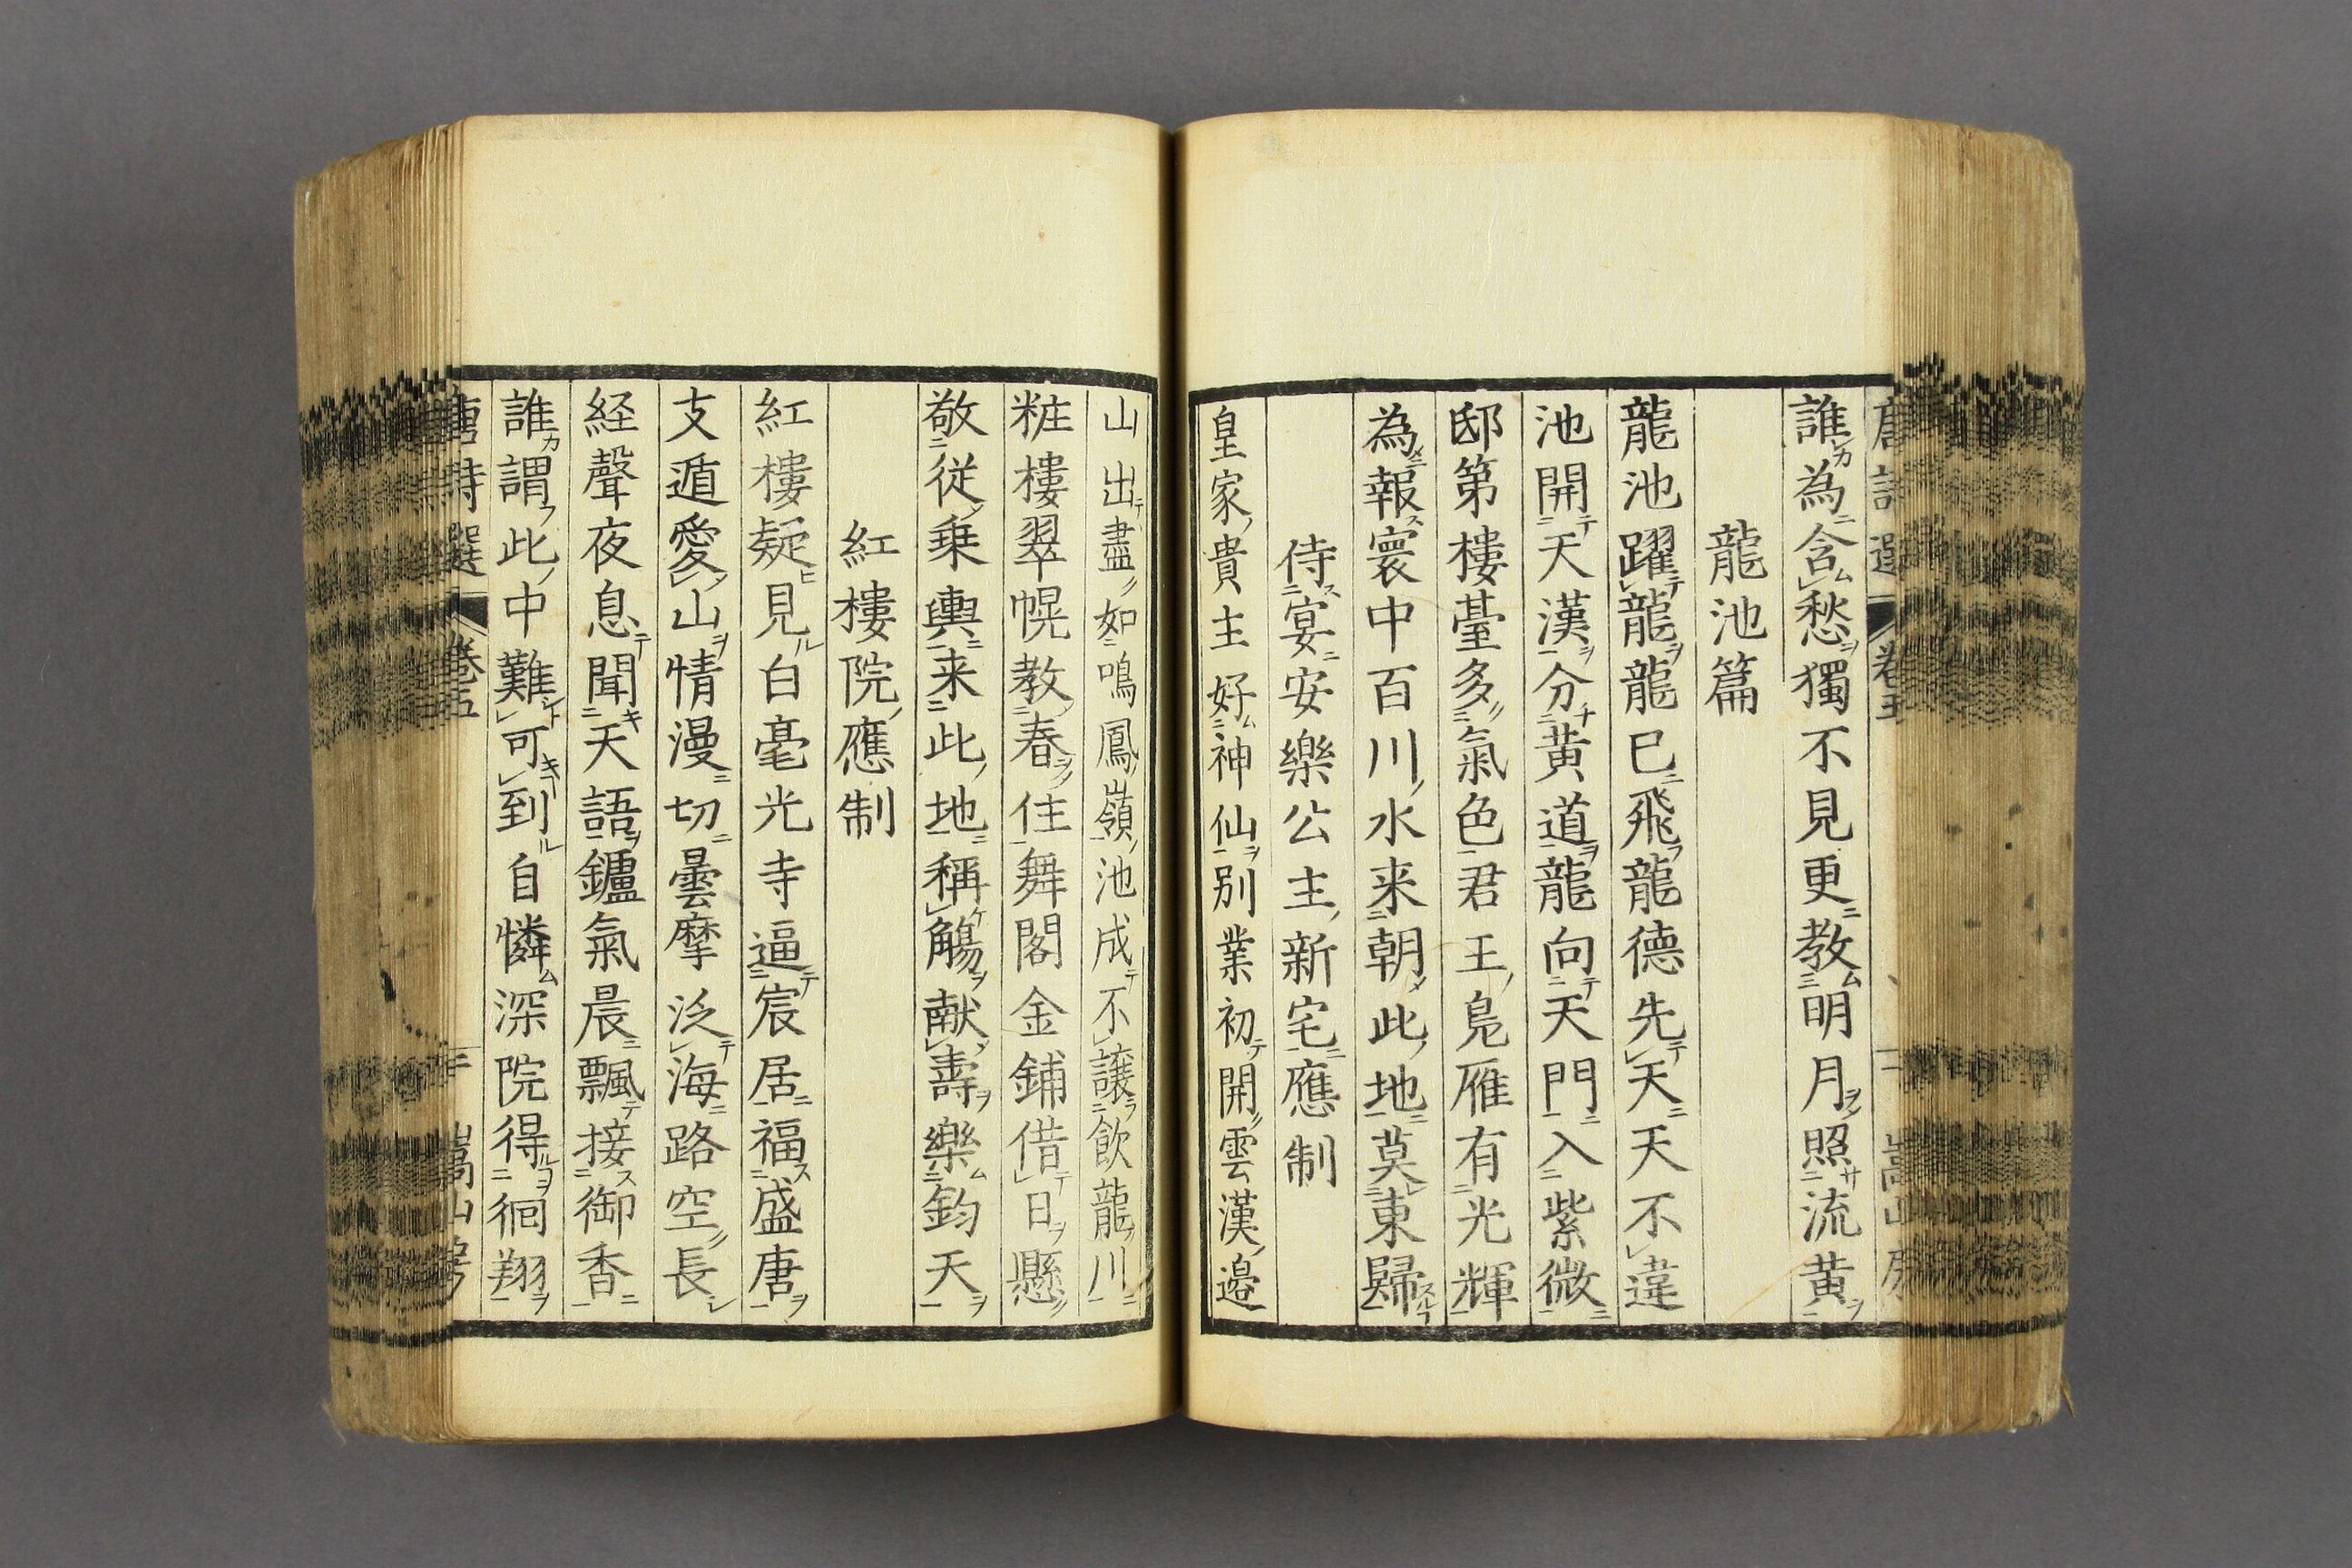 唐詩選 卷五 二 嵩山房
誰カ為ニ含ム愁ヲ獨不見更ニ教ム明月ヲノ照サ流黄ヲ
龍池篇
龍池躍テ龍ヲ龍已ニ飛フ龍德先テ天ニ天不違
池開テ天漢ヲ分チ黄道ヲ龍向テ天門ニ入紫微ニ
邸第樓䑓多ノ氣色君王ノ鳬雁有光輝
為メニ報ス寰中百川ノ水来朝メ此ノ地ニ莫レ東歸スル
侍ス宴ニ安樂公主ノ新宅ニ應制
皇家ノ貴主好ム神仙ヲ別業初テ開ノ雲漢ノ邉
山出テ盡ノ如鳴鳳ノ嶺ノ池成テ不讓ラ飲龍ノ川ニ
粧樓翠幌教ノ春ヲノ住舞閣金鋪借テ日ヲ懸ノ
敬從ノ乗輿ニ来此ノ地ニ稱ケ觴ヲ献メ壽ヲ樂ム鈞天ヲ
紅樓院ノ應制
紅樓疑ヒ見ル白毫光寺逼テ宸居ニ福ス盛唐ヲ
支遁愛ノ山ヲ情漫ニ切ニ曇摩泛テ海ニ路空ノ長シ
経聲夜息テ聞キ天語ヲ鑪氣晨ニ飄テ接ス御香ニ
誰カ謂フ此ノ中難シト可キー到ル自憐ム深院得ルヿヲ徊翔ヲ
唐詩選 卷五 三 嵩山房